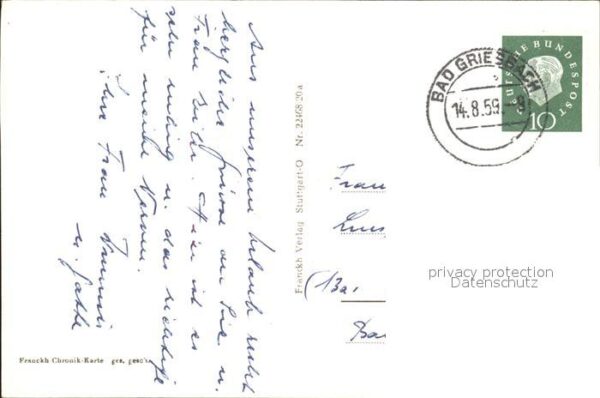 Aus unserem Urlaub recht
herzliche Grüsse an Sie u.
Frau Hier ist es
sehr ruhig u. das richtige
für meine Nerven.
Ihre Frau
u. Gatte
Franckh Verlag Stuttgart-O Nr. 22468/20a
Franckh Chronik-Karte ges. gesch.
BAD GRIESBACH
14.8.59.-8
DEUTSCHE BUNDESPOST
10
Frau
(Ba
Ba
privacy protection
Datenschutz